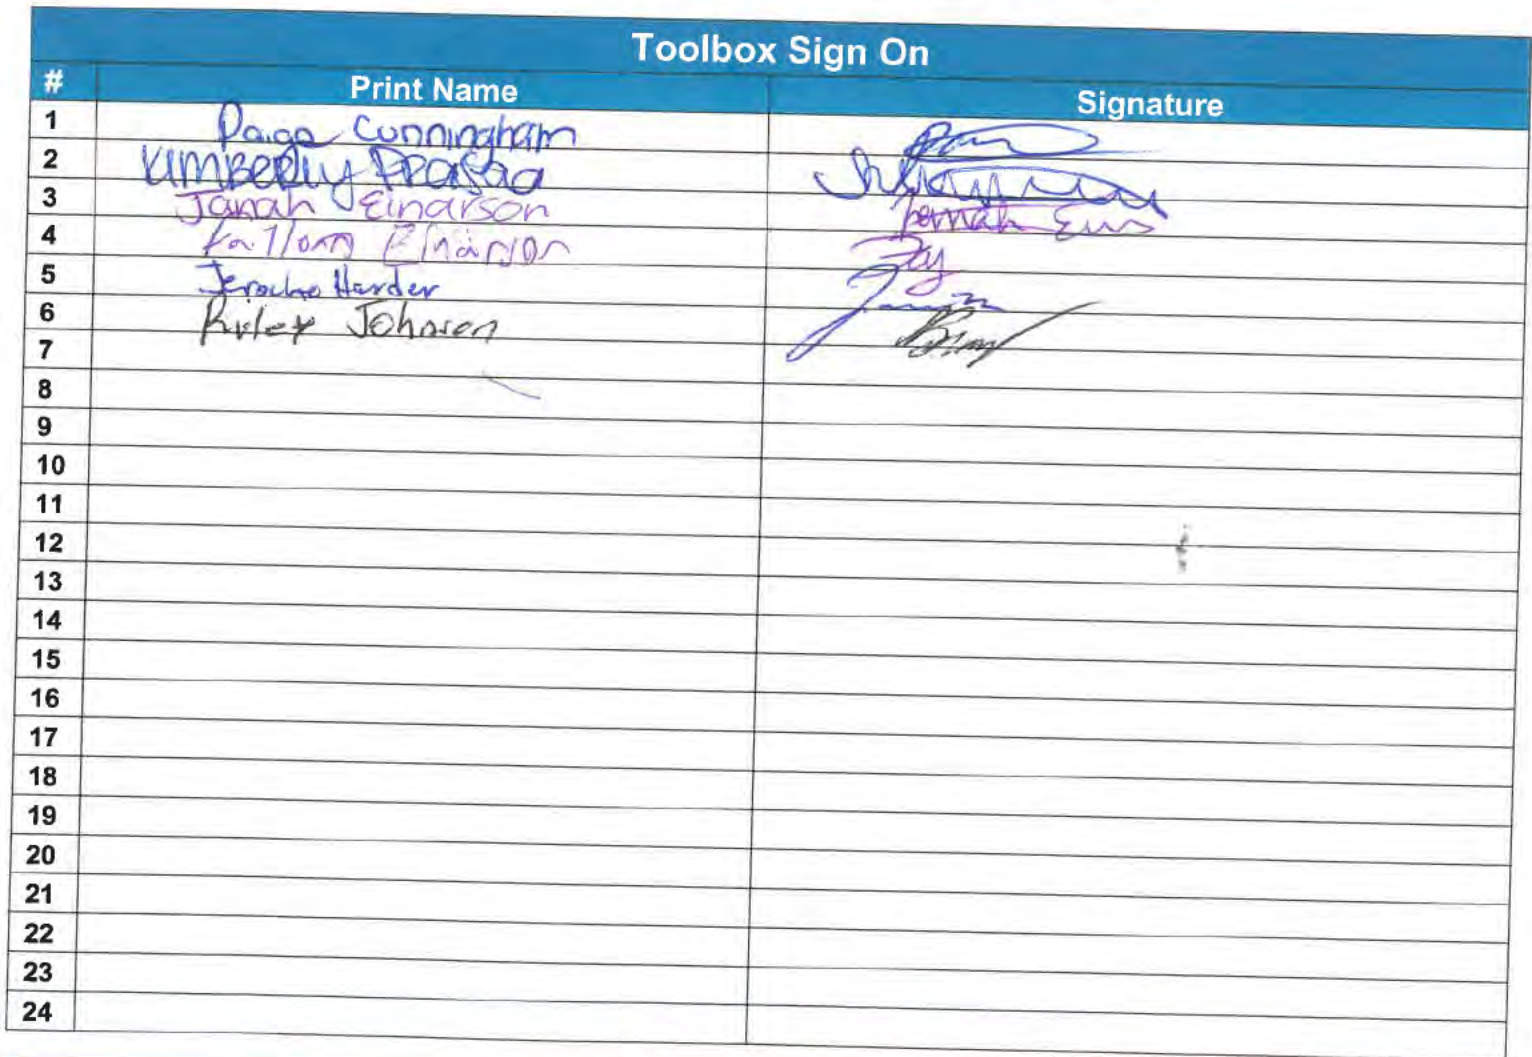 Toolbox Sign On
# Print Name Signature
1 Paige Cunningham
2 Kimberly Prasad
3 Janah Einarson
4 Einarson
5 Harder
6 Riley Johnson
7
8
9
10
11
12
13
14
15
16
17
18
19
20
21
22
23
24